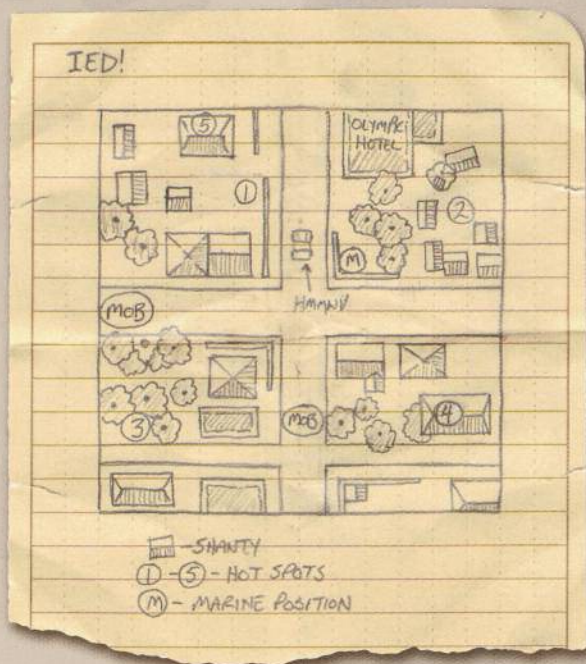 IED!
5
OLYMPIC
HOTEL
1
2
M
HMMWV
MOB
3
MOB
4
- SHANTY
1 - 5 - HOT SPOTS
M - MARINE POSITION